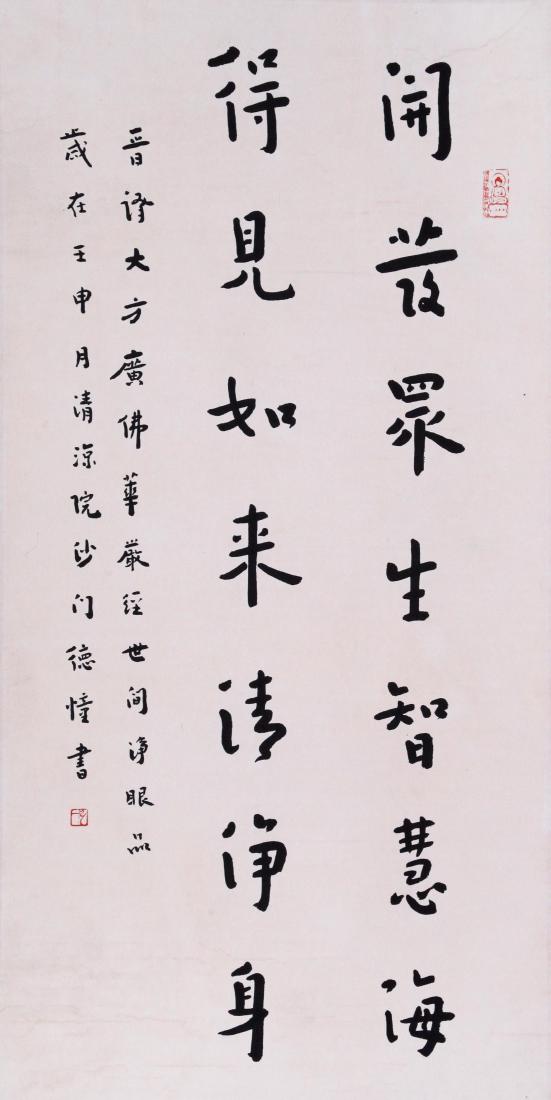 開發眾生智慧海
得見如来清淨身
晋譯大方廣佛華嚴經世间淨眼品
歲在壬申月清涼院沙门德幢書